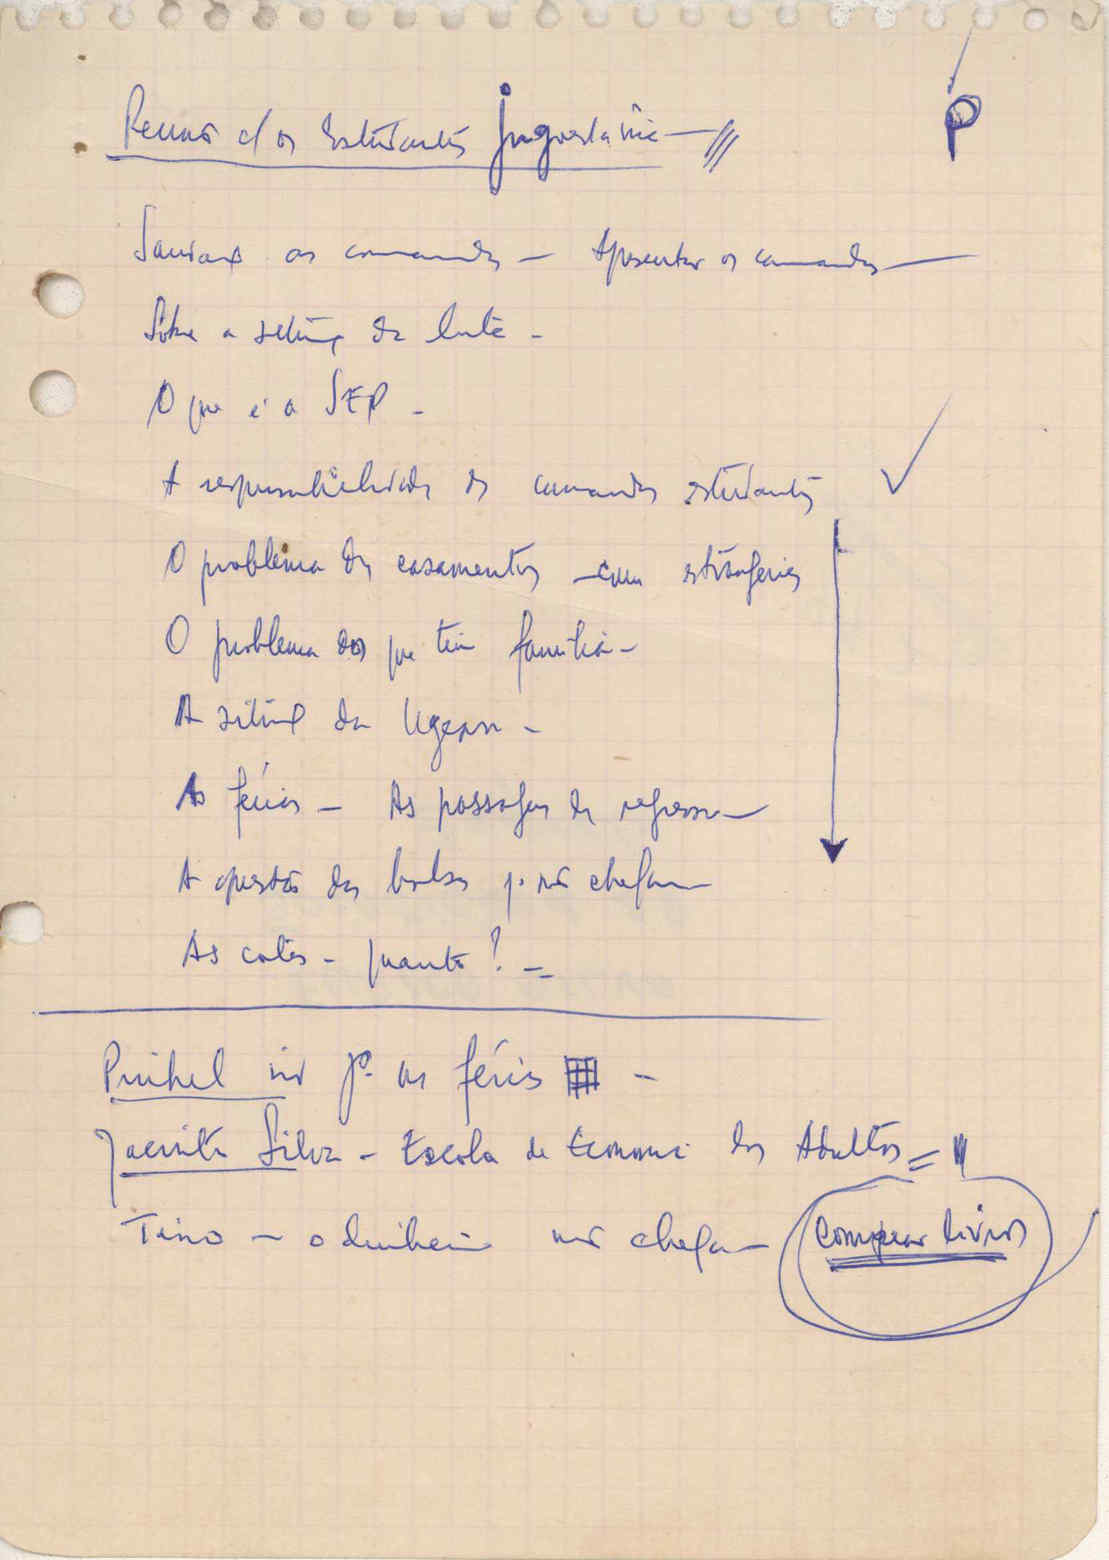 P
Reunião c/ os Estudantes Jugoslávia
Saudar os camaradas — Apresentar os camaradas —
Sobre a situação da luta -
O que é a SEP -
A responsabilidade dos camaradas estudantes
O problema dos casamentos - com estrangeiras
O problema dos que têm família -
A situação da Ugean -
As férias — As passagens de regresso —
A questão das bolsas q. não chegam —
As cotas - quanto? =
Pinhel vir p.ª as férias -
Jacinto Silva - Escola de Economia dos Adultos =
Tino — o dinheiro não chega — Comprar livros